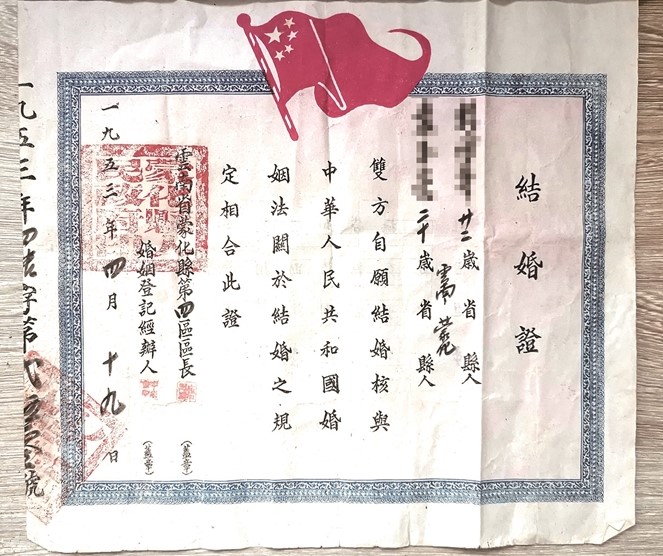 結婚證
廿二歲 省 縣人
二十歲 省 縣人
雙方自願結婚核與
中華人民共和國婚
姻法關於結婚之規
定相合此證
雲南省蒙化縣第四區區長（蓋章）
婚姻登記經辦人（蓋章）
一九五三年四月十九日
一九五三年四結字第 號